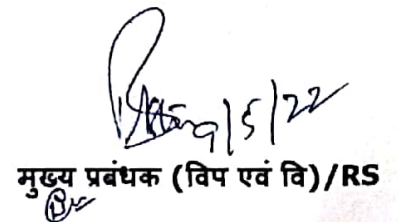 9/5/22
मुख्य प्रबंधक (विप एवं वि)/RS